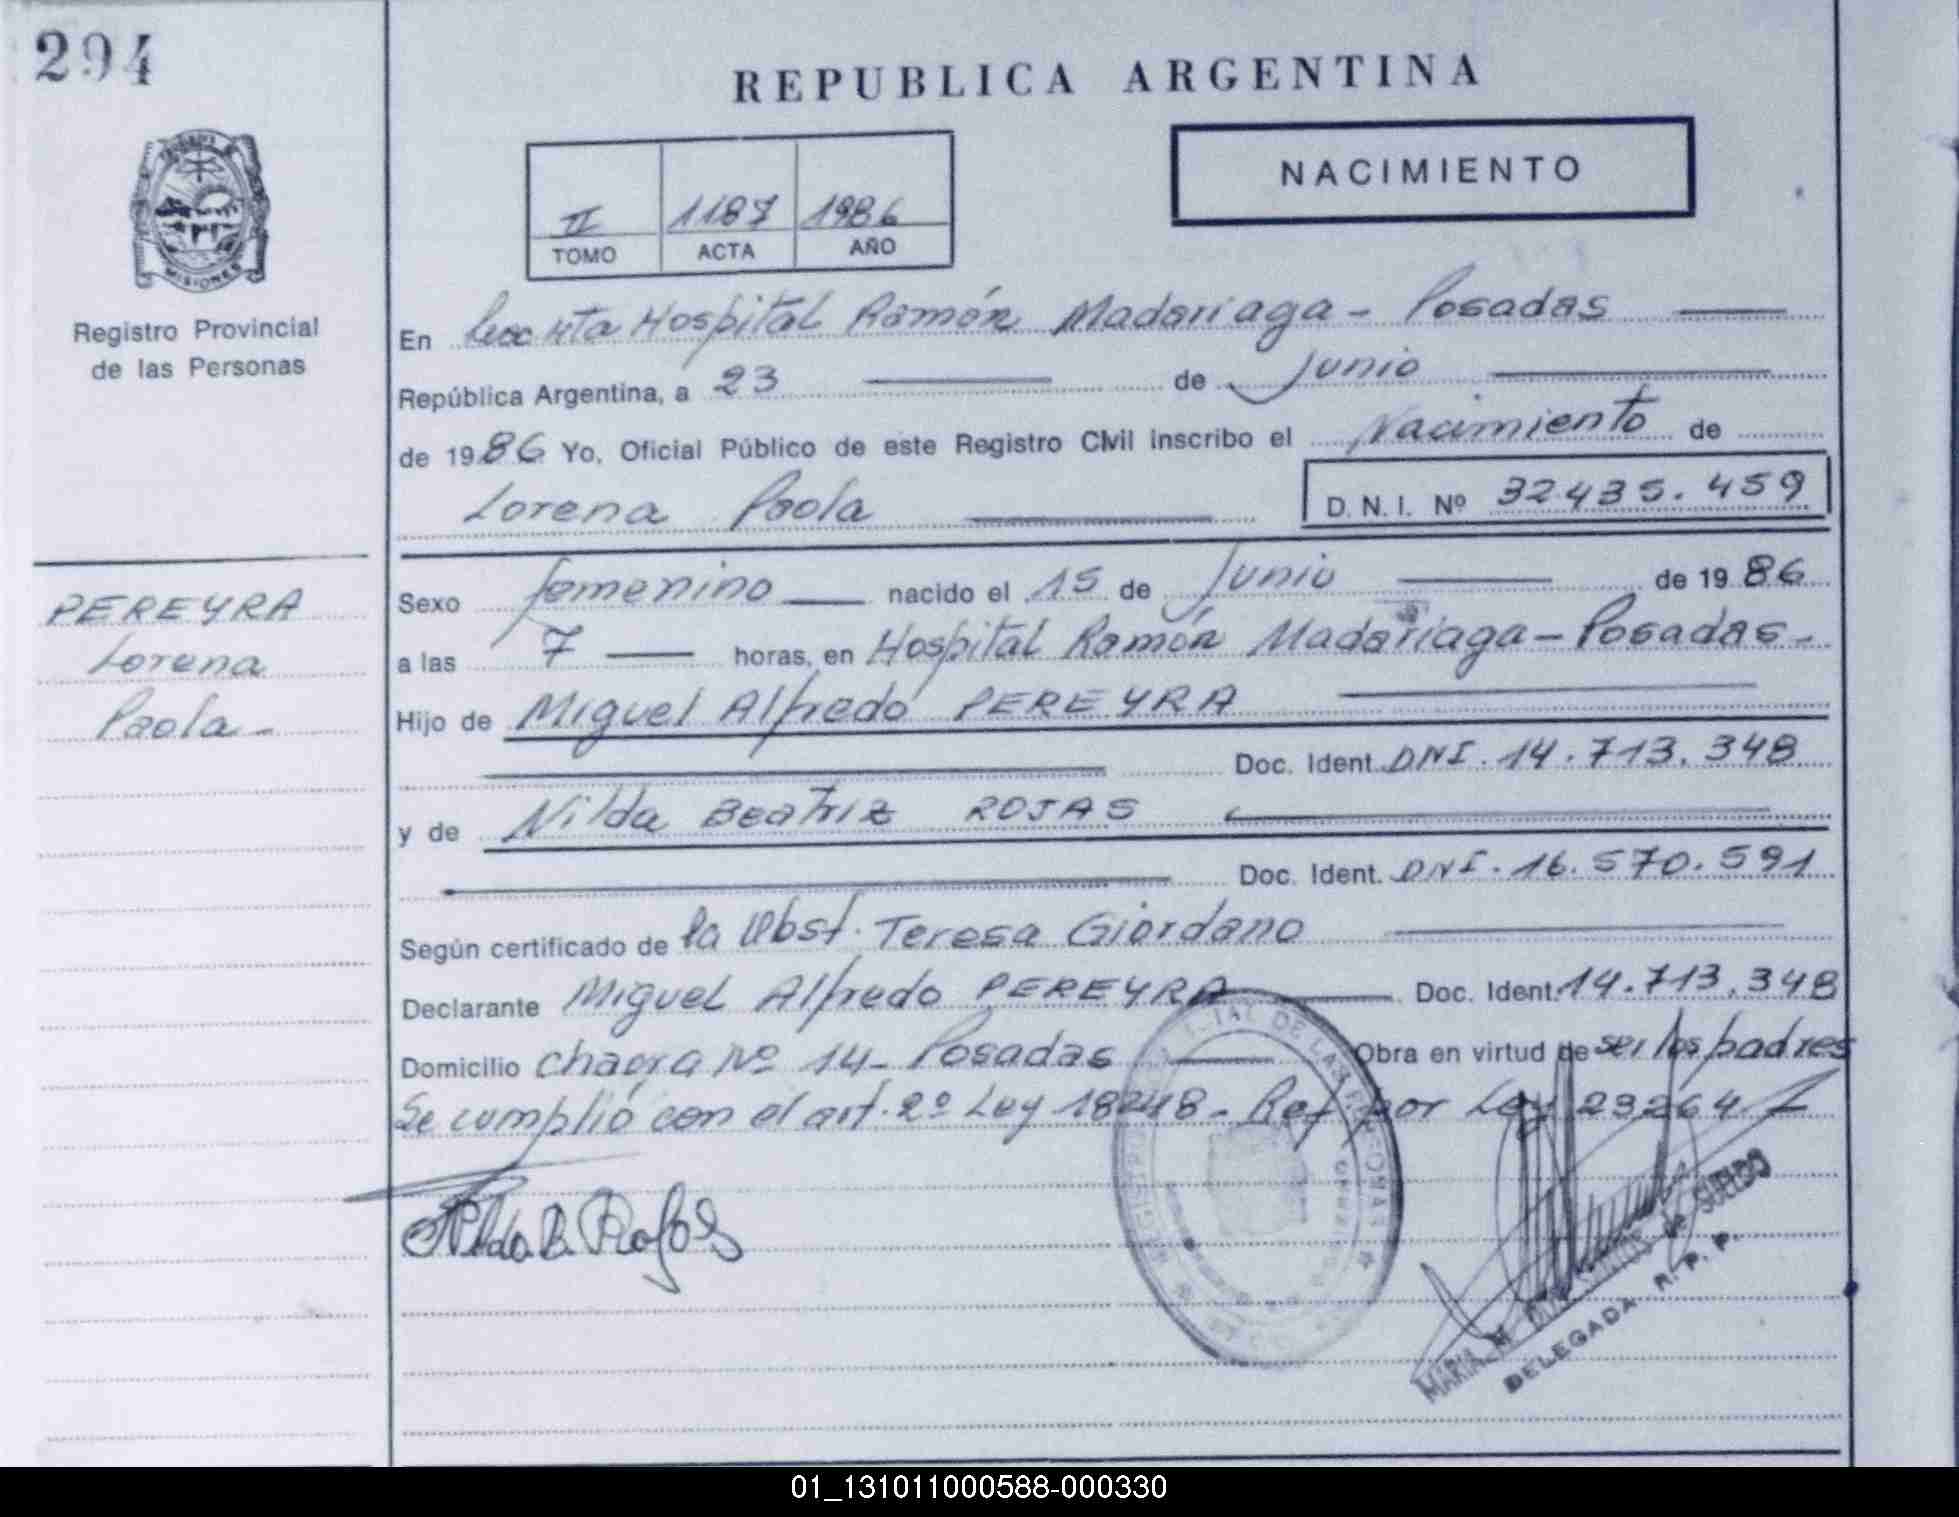 294
REPUBLICA ARGENTINA
NACIMIENTO
II 1187 1986
TOMO ACTA AÑO
MISIONES
Registro Provincial
de las Personas
En Hospital Ramón Madariaga - Posadas
República Argentina, a 23 de Junio
de 1986 Yo, Oficial Público de este Registro Civil inscribo el Nacimiento de
Lorena Paola D.N.I. Nº 32.435.459
PEREYRA
Lorena
Paola -
Sexo femenino nacido el 15 de Junio de 1986
a las 7 horas, en Hospital Ramón Madariaga - Posadas -
Hijo de Miguel Alfredo PEREYRA
Doc. Ident. DNI. 14.713.348
y de Nilda Beatriz ROJAS
Doc. Ident. DNI. 16.570.591
Según certificado de la Obst. Teresa Giordano
Declarante Miguel Alfredo PEREYRA Doc. Ident. 14.713.348
Domicilio chacra Nº 14 - Posadas Obra en virtud de ser los padres
Se cumplió con el art. 2º Ley 18248 - Ref por Ley 23264
Nilda B. Rojas
DE LAS PERSONAS
REGISTRO
MARIA
de SUELDO
DELEGADA R. P. P.
01_131011000588-000330